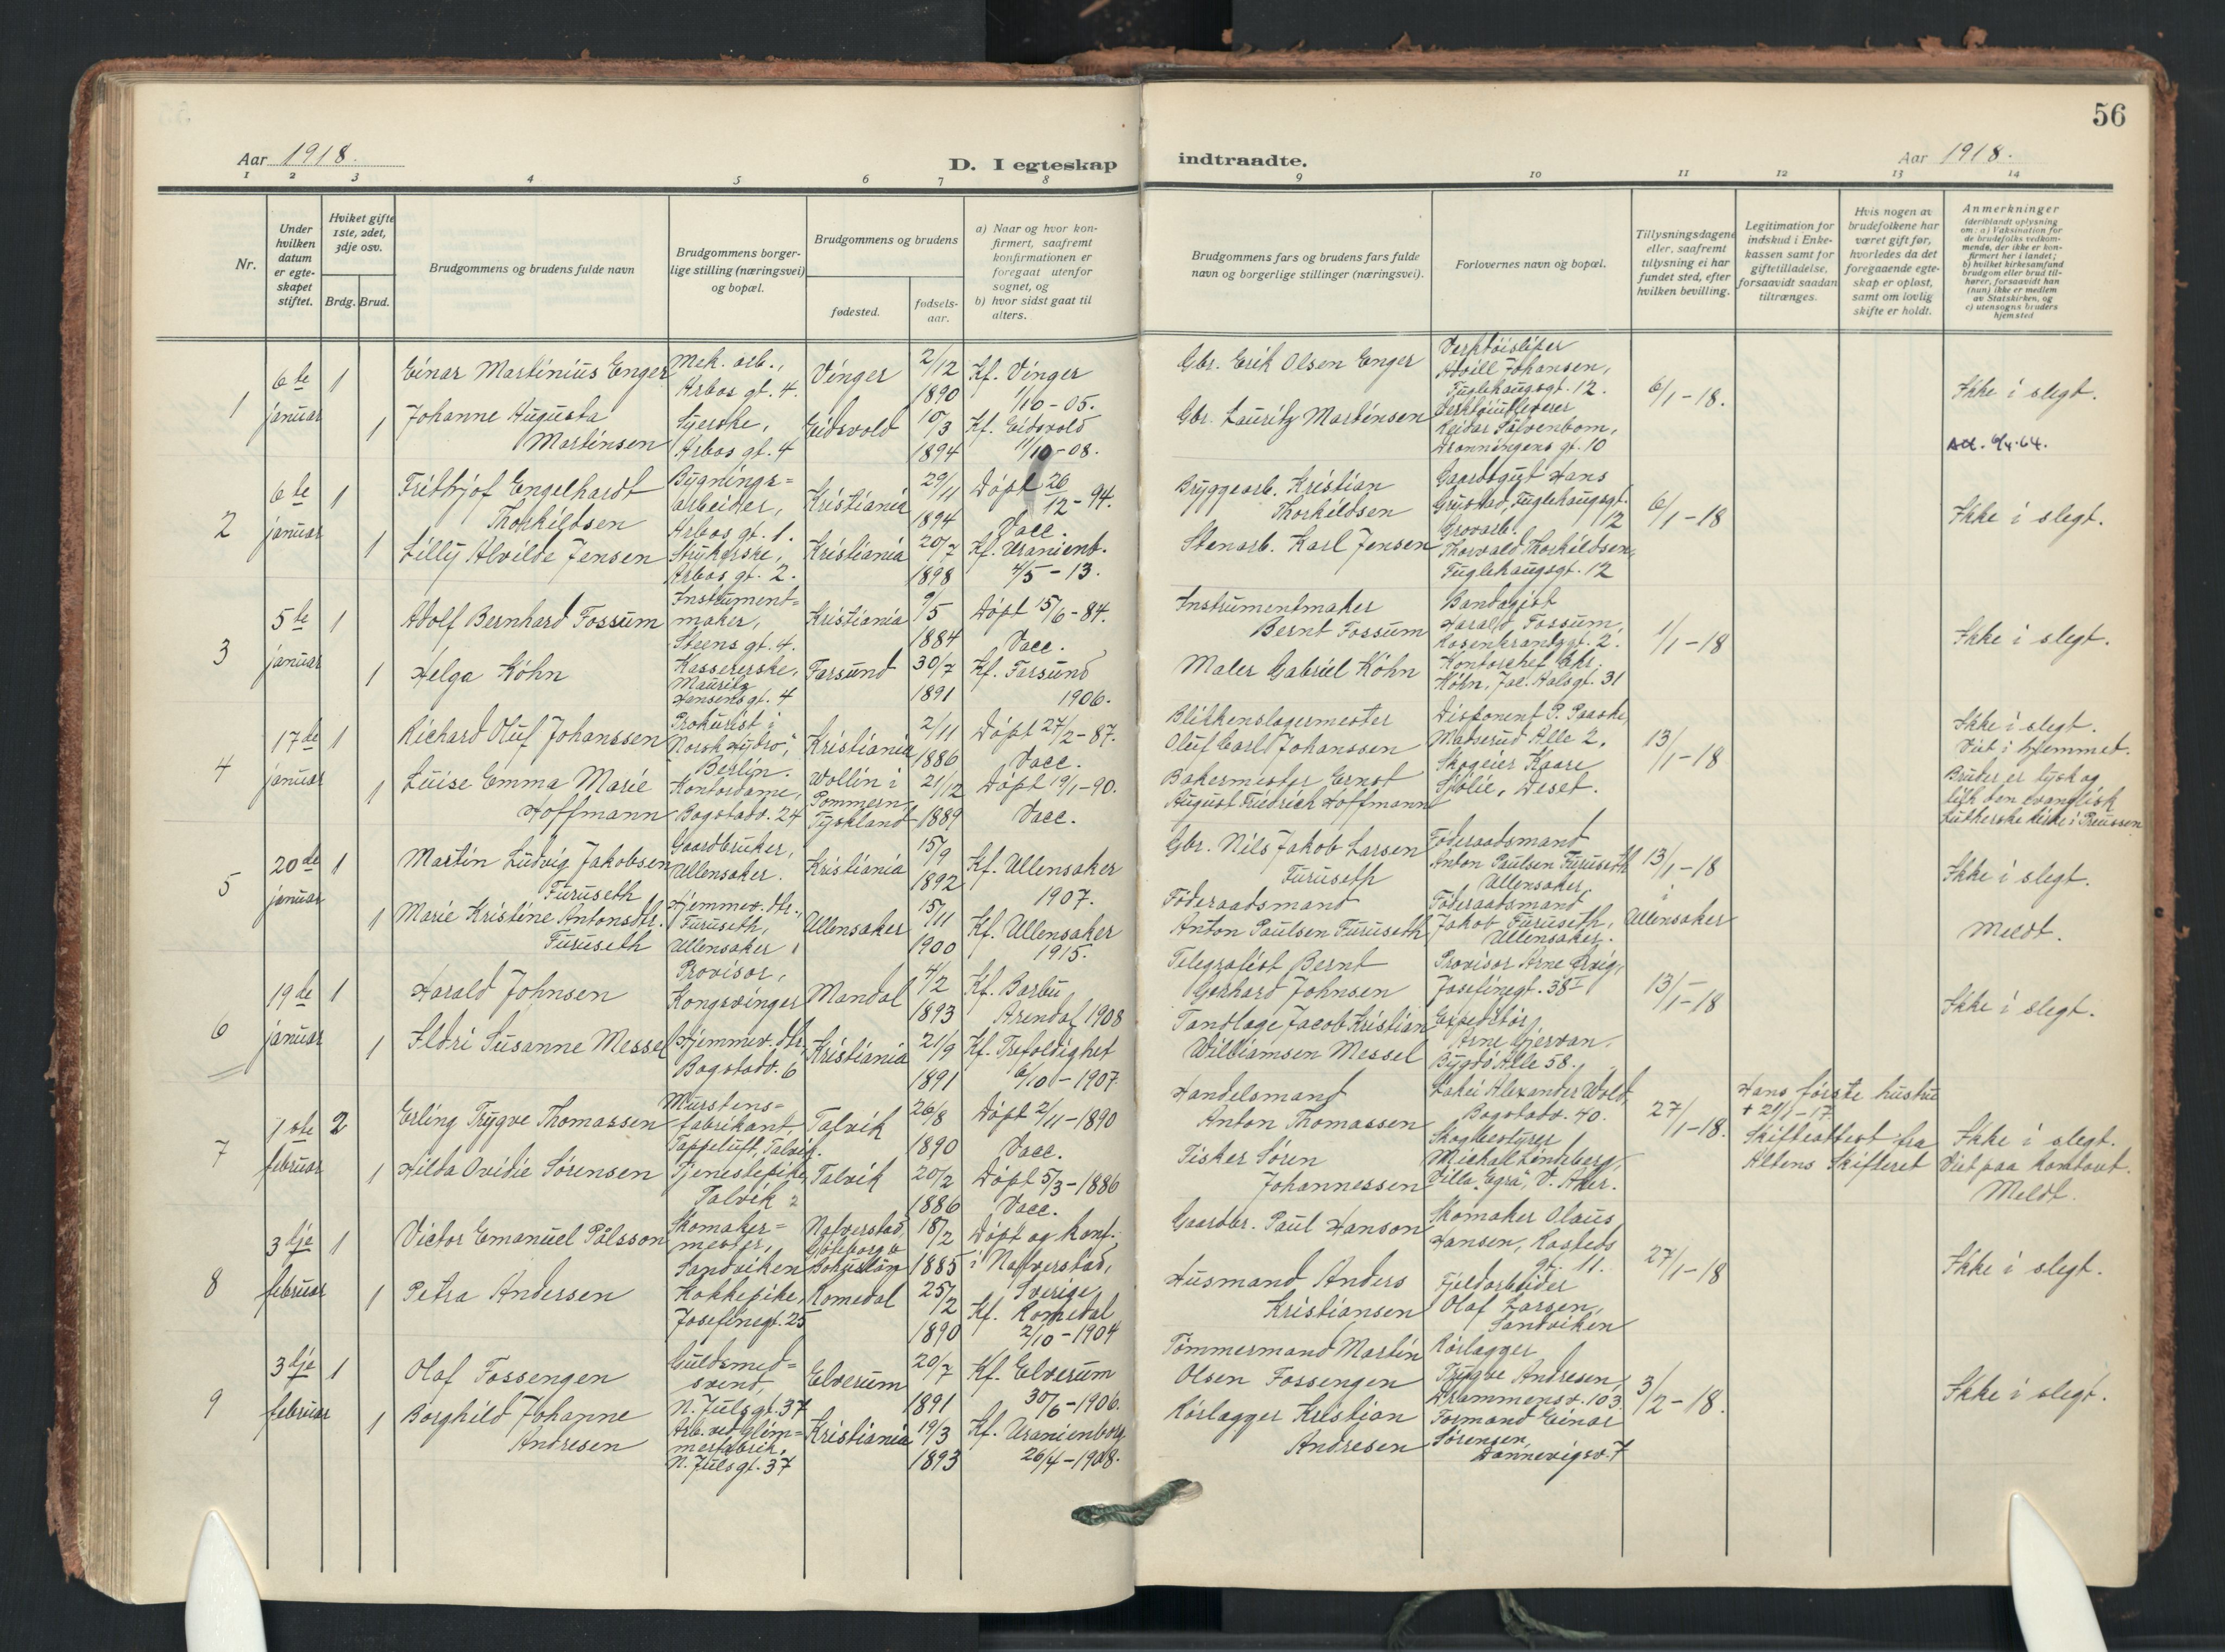 56
Aar 1918.
D. I egteskap
indtraadte.
Aar 1918.
1 2 3 4 5 6 7 8 9 10 11 12 13 14
Nr.
Under
hvilken
datum
er egte-
skapet
stiftet.
Hviket gifte
1ste, 2det,
3dje osv.
Brdg. Brud.
Brudgommens og brudens fulde navn
Brudgommens borger-
lige stilling (næringsvei)
og bopæl.
Brudgommens og brudens
fødested.
fødsels-
aar.
a) Naar og hvor kon-
firmert, saafremt
konfirmationen er
foregaat utenfor
sognet, og
b) hvor sidst gaat til
alters.
Brudgommens fars og brudens fars fulde
navn og borgerlige stillinger (næringsvei).
Forlovernes navn og bopæl.
Tillysningsdagene
eller, saafremt
tillysning ei har
fundet sted, efter
hvilken bevilling.
Legitimation for
indskud i Enke-
kassen samt for
giftetilladelse,
forsaavidt saadan
tiltrænges.
Hvis nogen av
brudefolkene har
været gift før,
hvorledes da det
foregaaende egte-
skap er opløst,
samt om lovlig
skifte er holdt.
Anmerkninger
(deriblandt oplysning
om: a) Vaksination for
de brudefolks vedkom-
mende, der ikke er kon-
firmert her i landet;
b) hvilket kirkesamfund
brudgom eller brud til-
hører, forsaavidt han
(hun) ikke er medlem
av Statskirken, og
c) utensogns bruders
hjemsted
1
6te
januar
1
Einar Martinius Enger
Mek. arb.,
Arbos gt. 4.
Vinger
2/12
1890
Kf. Vinger
1/10-05.
Gbr. Erik Olsen Enger
Verktøisliper
Johansen,
Fuglehaugsgt. 12.
6/1-18.
Ikke i slegt.
1
Johanne Augusta
Martinsen
Syerske,
Arbos gt. 4
Eidsvold
10/3
1894
Kf. Eidsvold
11/10-08.
Gbr. Lauritz Martinsen
Reidar
Dronningens gt. 10
2
6te
januar
1
Fridtjof Engelhardt
Thorkildsen
Bygnings=
arbeider,
Arbos gt. 1.
Kristiania
29/11
1894
Døpt 26/12-94.
Vacc.
Bryggearb. Kristian
Thorkildsen
Gaardsgut Hans
Fuglehaugsgt.
12
6/1-18
Ikke i slegt.
1
Lilly Alvilde Jensen
Strykerske,
Arbos gt. 2.
Kristiania
20/7
1898
Kf. Uranienb.
4/5-13.
Stenarb. Karl Jensen
Grovarb.
Thorvald Thorkildsen,
Fuglehaugsgt. 12
3
5te
januar
1
Adolf Bernhard Fossum
Instrument=
maker,
Steens gt. 4.
Kristiania
9/5
1884
Døpt 15/6-84.
Vacc.
Instrumentmaker
Bernt Fossum
Bandagist
Harald Fossum,
Rosenkrantzgt. 2.
1/1-18
Ikke i slegt.
1
Helga Köhn
Kassererske,
Mauritz
Hansens gt. 4
Farsund
30/7
1891
Kf. Farsund
1906.
Maler Gabriel Köhn
Kontorchef Chr.
Köhn, Jac. Aalsgt. 31
4
17de
januar
1
Richard Oluf Johanssen
Prokurist i
"Norsk Hydro",
Berlin.
Kristiania
2/11
1886
Døpt 27/2-87.
Vacc.
Blikkenslagermester
Oluf Carl Johanssen
Disponent P. Paaske,
Madserud Alle 2,
13/1-18
Ikke i slegt.
Viet i hjemmet.
1
Luise Emma Marie
Hoffmann
Kontordame,
Bogstadv. 24
Wollin i
Pommern,
Tyskland
21/12
1889
Døpt 19/1-90.
Vacc.
Bakermester Ernst
August Friedrich Hoffmann
Skogeier Kaare
Sjölie, Deset.
Bruden er tysk og
den evangelisk
Lutherske kirke i Preussen
5
20de
januar
1
Martin Ludvig Jakobsen
Furuseth
Gaardbruker,
Ullensaker.
Kristiania
15/9
1892
Kf. Ullensaker
1907.
Gbr. Nils Jakob Larsen
Furuseth
Föderaadsmand
Anton Paulsen Furuseth
Ullensaker.
13/1-18
i
Ullensaker
Ikke i slegt.
1
Marie Kristine Antonsdtr.
Furuseth
Hjemmev. dtr.,
Furuseth,
Ullensaker
Ullensaker
15/11
1900
Kf. Ullensaker
1915.
Föderaadsmand
Anton Paulsen Furuseth
Föderaadsmand
Jakob Furuseth,
Ullensaker.
Meldt.
6
19de
januar
1
Harald Johnsen
Provisor,
Kongsvinger
Mandal
4/2
1893
Kf. Barbu,
Arendal, 1908
Telegrafist Bernt
Gerhard Johnsen
Provisor Arne
Josefinegt. 38 I
13/1-18
Ikke i slegt.
1
Ildri Susanne Messel
Hjemmev. dtr.
Bogstadv. 6
Kristiania
21/9
1891
Kf. Trefoldighet
6/10-1907.
Tandlæge Jacob Kristian
Williamsen Messel
Expeditør
Arne Gjersvan,
Bygdø Alle 58.
7
1ste
februar
2
Erling Trygve Thomassen
Murstens=
fabrikant,
Tappeluft, Talvik.
Talvik
26/8
1890
Døpt 2/11-1890
Vacc.
Handelsmand
Anton Thomassen
Lakei Alexander Wold,
Bogstadv. 40.
27/1-18.
Hans første hustru
+ 21/1-17
Skifteattest fra
Altens Skifteret
Ikke i slegt.
Viet paa kontoret.
Meldt.
1
Hilda Ovidie Sörensen
Tjenestepike,
Talvik
Talvik
20/2
1886
Døpt 5/3-1886
Vacc.
Fisker Sören
Johannessen
Skogbestyrer
Michael Lineberg,
Villa "Egra", V. Aker.
8
3dje
februar
1
Victor Emanuel Pålsson
Skomaker=
mester,
Sandviken
Naverstad,
Göteborg o
Bohuslän
18/2
1885
Døpt og konf.
i Naverstad,
Sverige
Gaardbr. Paul Hanson
Skomaker Olaus
Hansen, Rosteds
gt. 11.
27/1-18
Ikke i slegt.
1
Petra Andersen
Kokkepike,
Josefinegt. 25
Romedal
25/2
1890
Kf. Romedal
2/10-1904
Husmand Anders
Kristiansen
Fjeldarbeider
Olaf Larsen,
Sandviken
9
3dje
februar
1
Olaf Fossengen
Guldsmed=
svend,
N. Julsgt. 37
Elverum
20/7
1891
Kf. Elverum
30/6-1906.
Tömmermand Martin
Olsen Fossengen
Rörlægger
Trygve Andresen,
Drammensv. 103.
3/2-18.
Ikke i slegt.
1
Borghild Johanne
Andresen
Arb. ved Glim=
merfabrik,
N. Julsgt. 37
Kristiania
19/3
1893
Kf. Uranienborg
26/4-1908.
Rörlægger Kristian
Andresen
Formand Einar
Sörensen,
Dannevigsv. 7